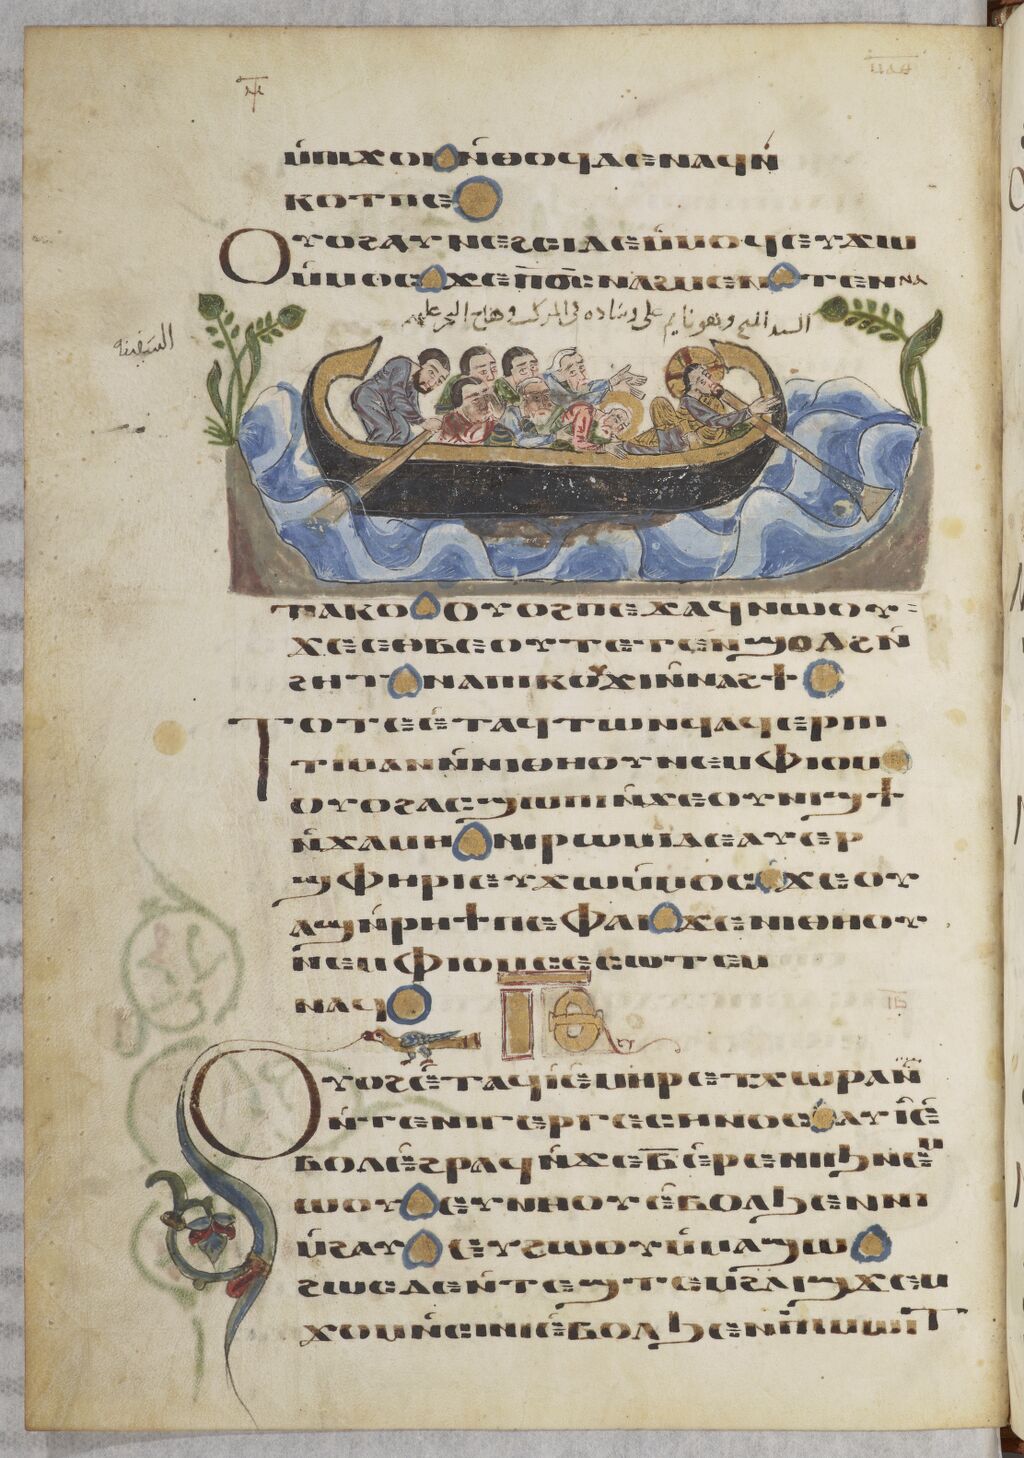 ⲙ̀ⲡⲓϫⲟⲓ ⲛ̀ⲑⲟϥ ⲇⲉ ⲛⲁϥⲛ̀
ⲕⲟⲧ ⲡⲉ
ⲟⲩⲟϩ ⲁⲩⲛⲉϩⲥⲓ ⲇⲉ ⲙ̀ⲙⲟϥ ⲉⲩϫⲱ
ⲙ̀ⲙⲟⲥ ϫⲉ ⲡϭ̅ⲥ̅ ⲛⲁϩⲙⲉⲛ ⲧⲉⲛⲛⲁ
السيد المسيح وهو نايم على وساده في المركب وهاج البحر عليهم
السفينة
ⲧⲁⲕⲟ ⲟⲩⲟϩ ⲡⲉϫⲁϥ ⲛⲱⲟⲩ
ϫⲉ ⲉⲑⲃⲉⲟⲩ ⲧⲉⲧⲉⲛϣⲟⲗϩ ⲛ̀
ϩⲏⲧ ⲛⲁ ⲡⲓⲕⲟⲩϫⲓ ⲛ̀ⲛⲁϩϯ
ⲧⲟⲧⲉ ⲉ̀ⲧⲁϥⲧⲱⲛϥ ⲁϥⲉⲣⲉⲡⲓ
ⲧⲓⲙⲁⲛ ⲛ̀ⲛⲓⲑⲏⲟⲩ ⲛⲉⲙ ⲫⲓⲟⲙ
ⲟⲩⲟϩ ⲁⲥϣⲱⲡⲓ ⲛ̀ϫⲉ ⲟⲩⲛⲓϣϯ
ⲛ̀ϫⲁⲙⲏ ⲛⲓⲣⲱⲙⲓ ⲇⲉ ⲁⲩⲉⲣ
ϣⲫⲏⲣⲓ ⲉⲩϫⲱ ⲙ̀ⲙⲟⲥ ϫⲉ ⲟⲩ
ⲁϣ ⲛ̀ⲣⲏϯ ⲡⲉ ⲫⲁⲓ ϫⲉ ⲛⲓⲑⲏⲟⲩ
ⲛⲉⲙ ⲫⲓⲟⲙ ⲥⲉⲥⲱⲧⲉⲙ
ⲛⲁϥ
ⲟⲩⲟϩ ⲉ̀ⲧⲁϥⲓ̀ ⲉ̀ⲙⲏⲣ ⲉ̀ⲧⲭⲱⲣⲁ ⲛ̀
ⲛ̀ⲧⲉ ⲛⲓⲅⲉⲣⲅⲉⲥⲏⲛⲟⲥ ⲁⲩⲓ̀ ⲉ̀
ⲃⲟⲗ ⲉ̀ϩⲣⲁϥ ⲛ̀ϫⲉ ⲃ̅ ⲉ̀ⲣⲉ ⲛⲓⲓϧ ⲛⲉⲙ
ⲱⲟⲩ ⲉⲩⲛⲏⲟⲩ ⲉ̀ⲃⲟⲗϧⲉⲛ ⲛⲓ
ⲙ̀ϩⲁⲩ ⲉⲩϩⲱⲟⲩ ⲙ̀ⲙⲁϣⲱ
ϩⲱⲥⲇⲉ ⲛ̀ⲧⲉϣⲧⲉⲙϩⲗⲓ ϣϫⲉⲙ
ϫⲟⲙ ⲛ̀ⲥⲓⲛⲓ ⲉ̀ⲃⲟⲗϧⲉⲛ ⲡⲓⲙⲱⲓⲧ